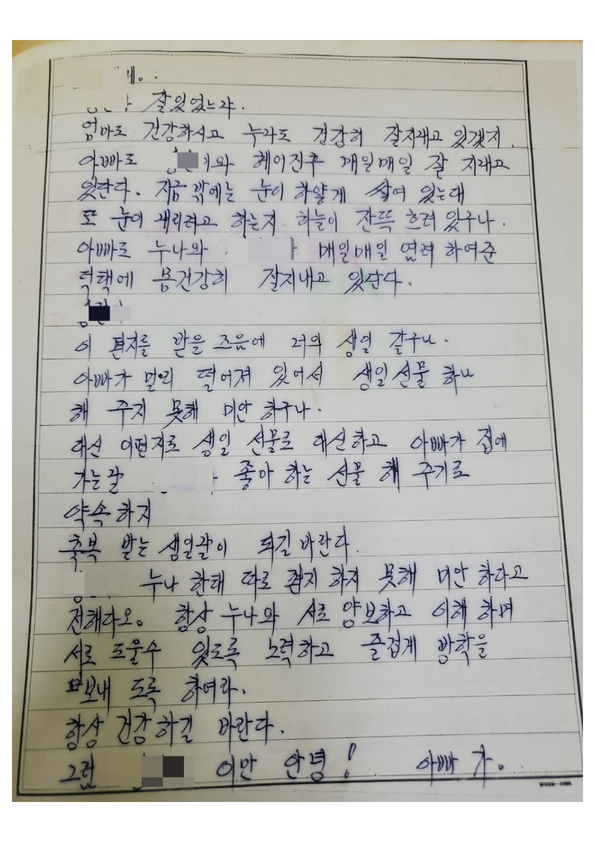 에.
잘있었느냐.
엄마도 건강하시고 누나도 건강히 잘지내고 있겠지
아빠도 와 헤어진후 매일매일 잘 지내고
있단다. 지금 밖에는 눈이 하얗게 쌓여 있는대
또 눈이 내리려고 하는지 하늘이 잔뜩 흐려 있구나.
아빠도 누나와 매일매일 염려 하여준
덕택에 몸건강히 잘지내고 있단다.
이 편지를 받을 즈음에 너의 생일 같구나.
아빠가 멀리 떨어져 있어서 생일선물 하나
해 주지 못해 미안 하구나.
대신 이편지로 생일 선물로 대신하고 아빠가 집에
가는날 좋아 하는 선물 해 주기로
약속 하지
축복 받는 생일날이 되길 바란다.
누나 한태 따로 편지 하지 못해 미안 하다고
전해다오. 항상 누나와 서로 양보하고 이해 하며
서로 도울수 있도록 노력하고 즐겁게 방학을
보내 도록 하여라.
항상 건강 하길 바란다.
그럼 이만 안녕! 아빠 가.